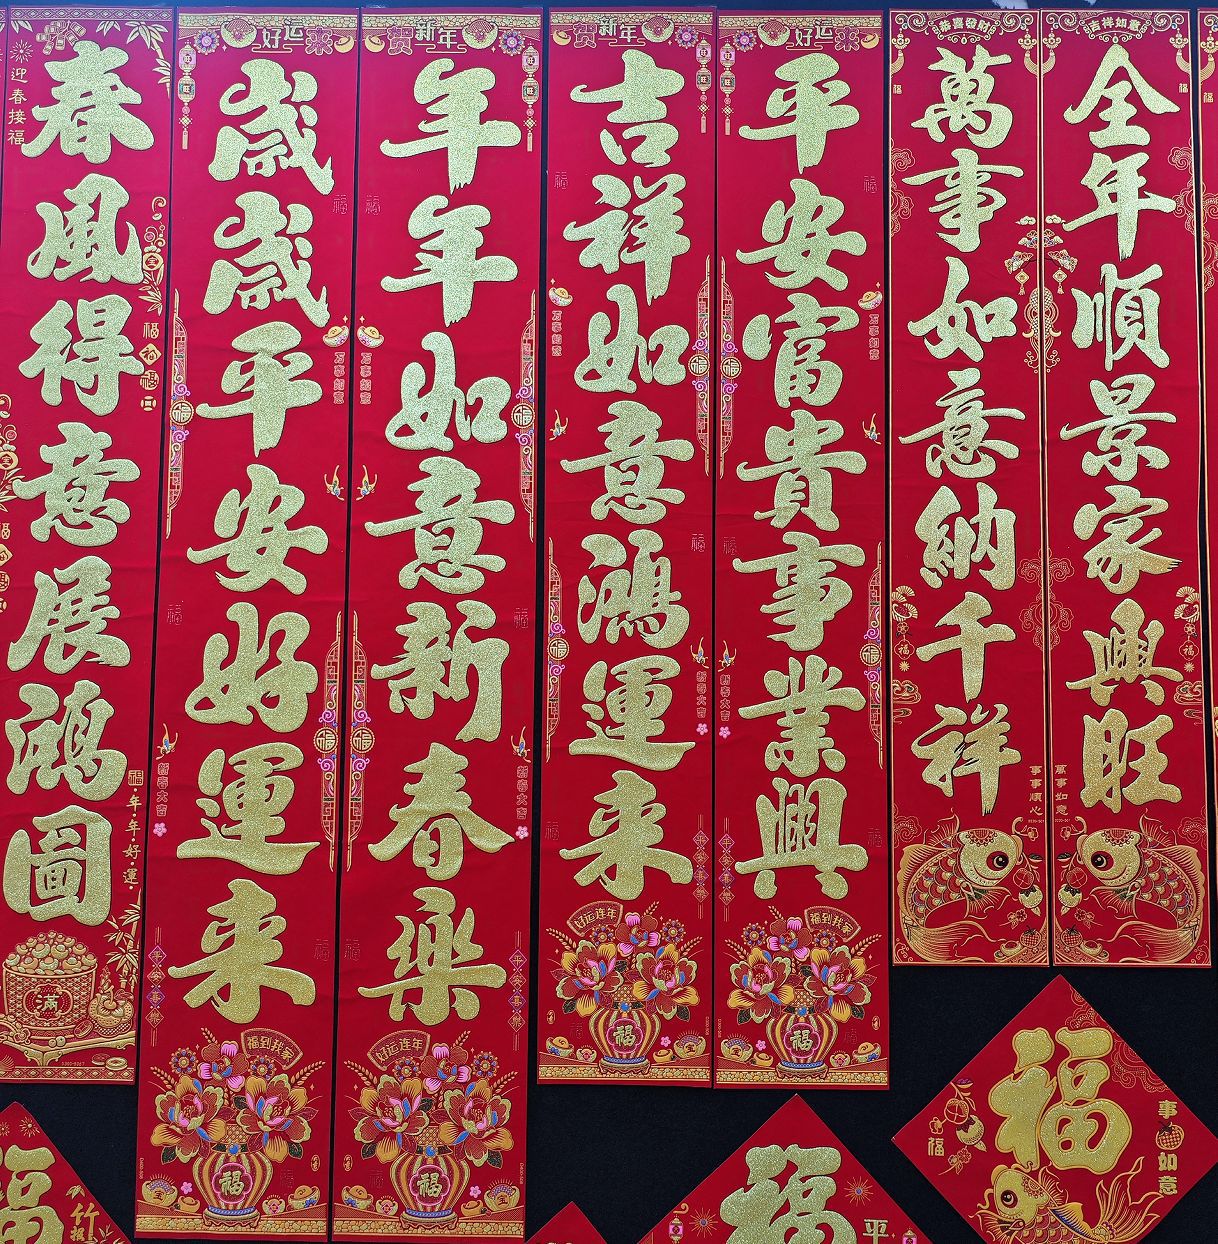 迎春接福
春風得意展鴻圖
福
年年好運
滿
好运来
歲歲平安好運来
万事如意
新春大吉
平安喜樂
福到我家
福
贺新年
年年如意新春樂
万事如意
新春大吉
好运连年
福
贺新年
吉祥如意鴻運来
万事如意
新春大吉
好运连年
福
好运来
平安富貴事業興
万事如意
新春大吉
福到我家
福
恭喜發財
萬事如意納千祥
事事順心
吉祥如意
全年順景家興旺
萬事如意
福
竹报
福
平
福
福
事事如意